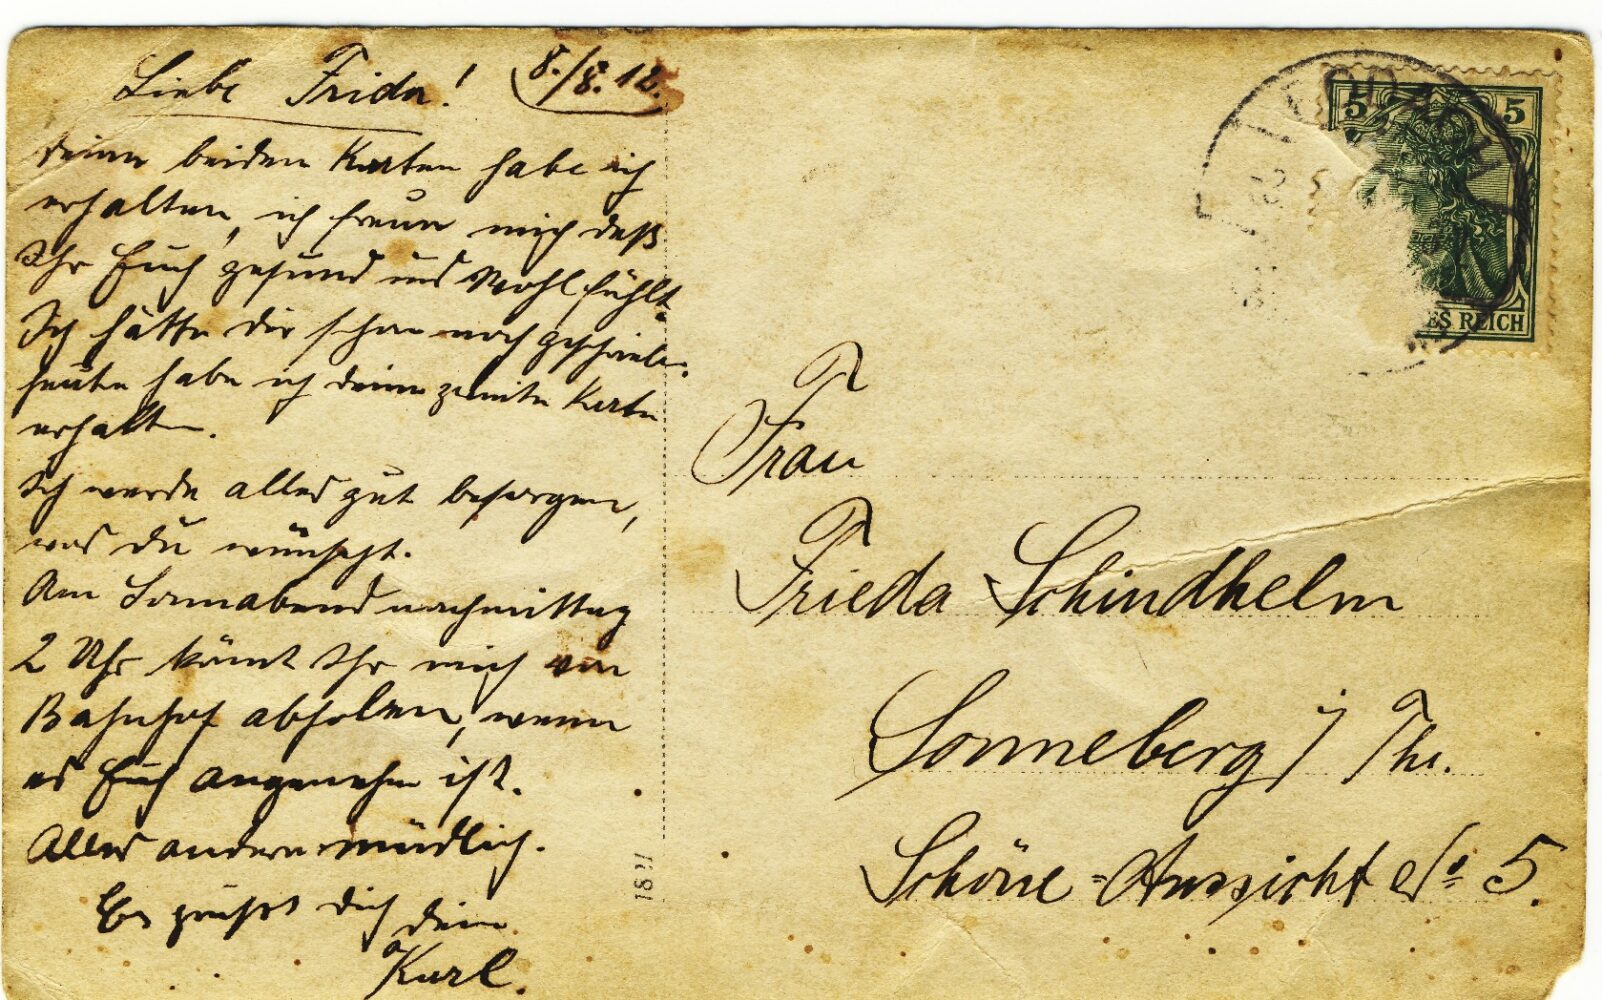 Liebe Frida! 8./8. 12.
deine beiden Karten habe ich
erhalten, ich freue mich daß
Ihr Euch gesund und Wohl fühlt.
Ich hätte dir schon noch geschrieben.
heute habe ich deine zweite Karte
erhalten.
Ich werde alles gut besorgen,
was du wünscht.
Am Sonnabend nachmittag
2 Uhr könnt Ihr mich vom
Bahnhof abholen, wenn
es Euch angenehm ist.
Alles andere mündlich.
Es grüßt dich dein
Karl.
1821
5 5
ES REICH
Frau
Frieda Schindhelm
Sonneberg i Thr.
Schöne-Aussicht No 5.